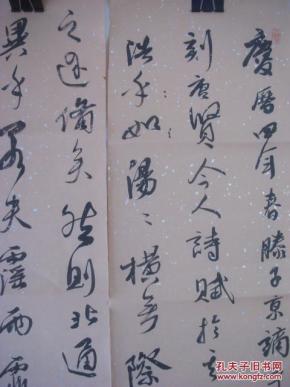 慶曆四年春滕子京謫
刻唐賢今人詩賦於
浩乎如湯〻橫無際
之述備矣然則北通
異乎若夫霪雨霏
孔夫子旧书网